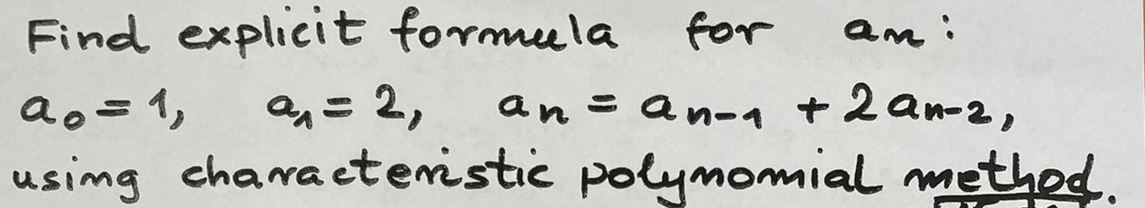 Find explicit formula for aₙ:
a₀ = 1, a₁ = 2, aₙ = aₙ₋₁ + 2aₙ₋₂,
using characteristic polynomial method.